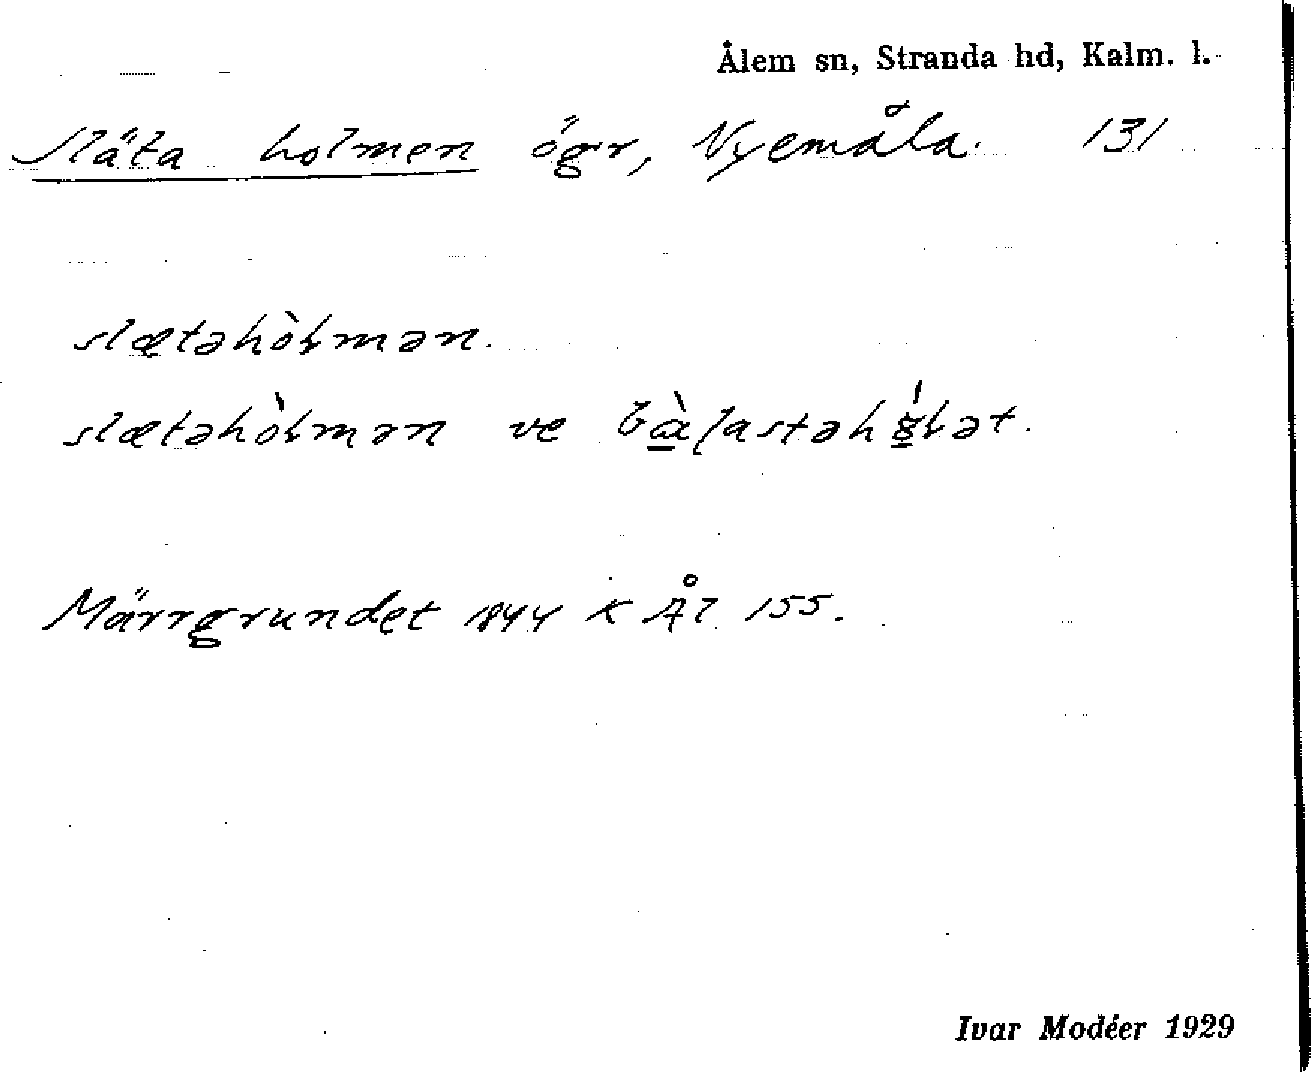 Ålem sn, Stranda hd, Kalm. l.
Släta holmen ögr, Nyemåla. 131
slætəhòƚmən.
slætəhòƚmən ve
Märrgrundet 1844 K Ål 155.
Ivar Modéer 1929